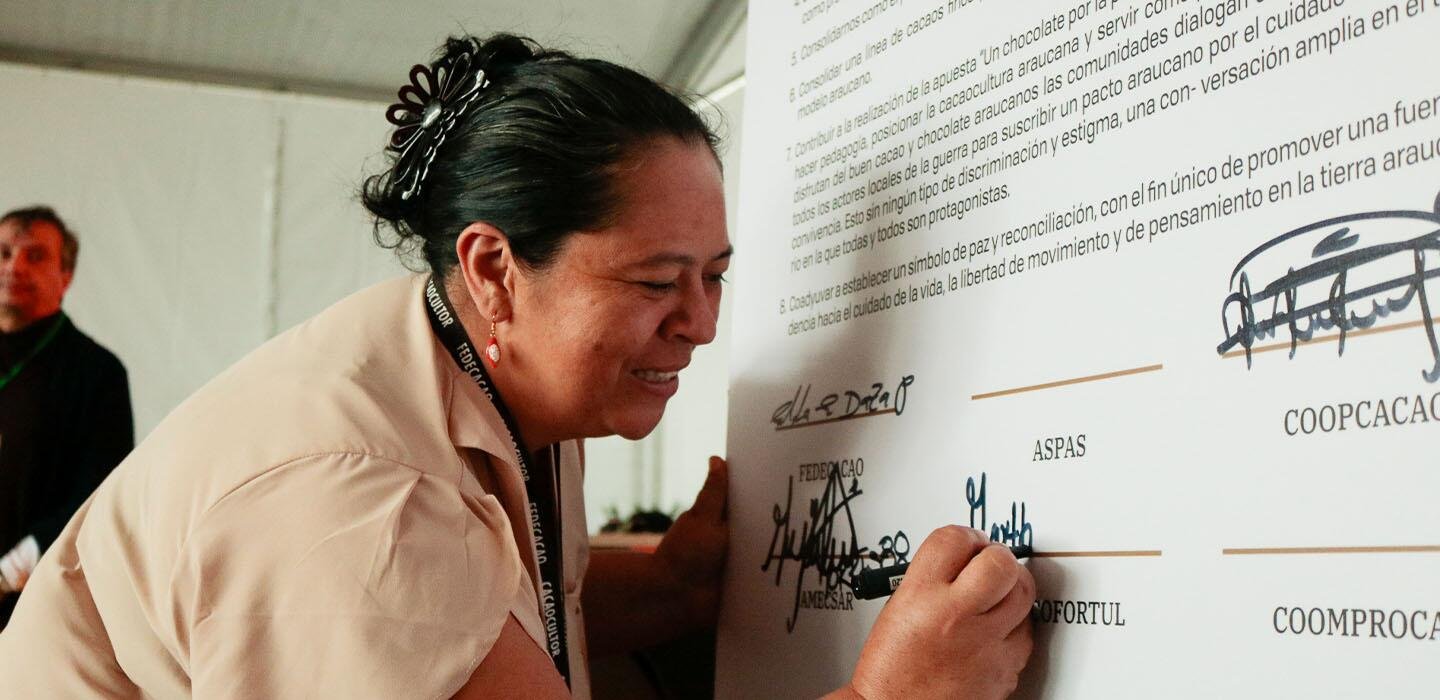 como
5. Consolidarnos como
6. Consolidar una línea de cacaos finos
modelo araucano.
7. Contribuir a la realización de la apuesta "Un chocolate por la
hacer pedagogía, posicionar la cacaocultura araucana y servir como
disfrutan del buen cacao y chocolate araucanos las comunidades dialogan
todos los actores locales de la guerra para suscribir un pacto araucano por el cuidado
convivencia. Esto sin ningún tipo de discriminación y estigma, una con- versación amplia en el
rio en la que todas y todos son protagonistas.
8. Coadyuvar a establecer un símbolo de paz y reconciliación, con el fin único de promover una
dencia hacia el cuidado de la vida, la libertad de movimiento y de pensamiento en la tierra
FEDECACAO
ASPAS
COOPCACAO
AMECSAR
COFORTUL
COOMPROCA
FEDECACAO
CACAOCULTOR
FEDECACAO
CACAOCULTOR